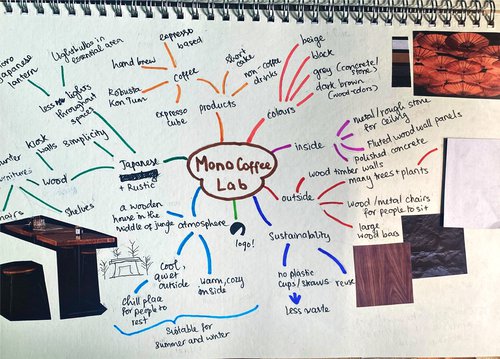 Mono Coffee
Lab
products
coffee
espresso
based
hand brew
Robusta
Kon Tum
espresso
tube
short
cake
non-coffee
drinks
colours
beige
black
grey (concrete/
stone)
dark brown
(wood colors)
inside
metal/rough stone
for ceiling
Fluted wood wall panels
polished concrete
wood timber walls
outside
many trees + plants
wood/metal chairs
for people to sit
large
wood bars
Sustainability
no plastic
cups/straws
reuse
less waste
logo!
atmosphere
a wooden
house in the
middle of jungle
cool,
quiet
outside
warm, cozy
inside
chill place
for people to
rest
Suitable for
summer and winter
Japanese
+ Rustic
simplicity
wood
kiosk
walls
shelves
chairs
less lights
throughout
spaces
Lightbulbs in
essential area
mono
Japanese
lantern